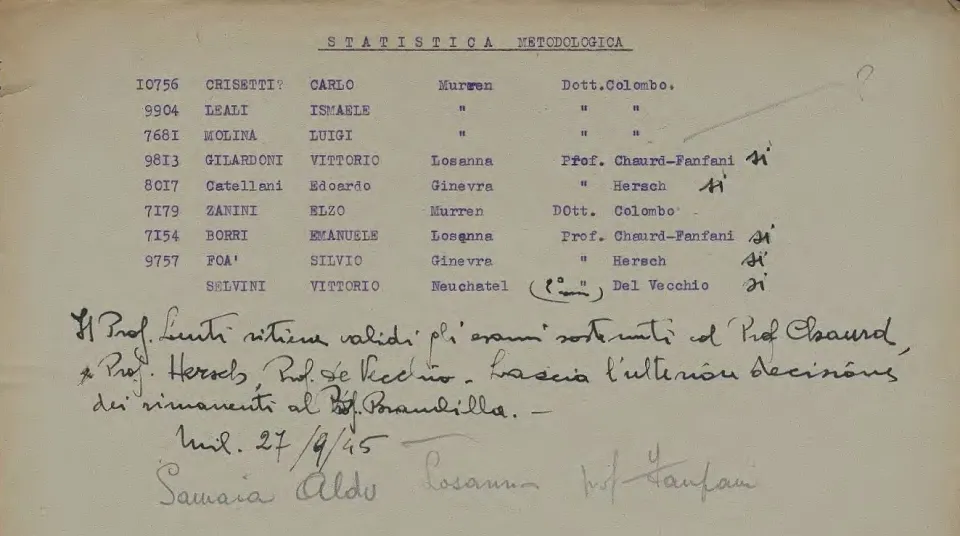 STATISTICA METODOLOGICA
10756 CRISETTI? CARLO Murren Dott.Colombo. ?
9904 LEALI ISMAELE " " "
7681 MOLINA LUIGI " " "
9813 GILARDONI VITTORIO Losanna Prof. Chaurd-Fanfani sì
8017 Catellani Edoardo Ginevra " Hersch sì
7179 ZANINI ELZO Murren DOtt. Colombo
7154 BORRI EMANUELE Losanna Prof. Chaurd-Fanfani sì
9757 FOA' SILVIO Ginevra " Hersch sì
SELVINI VITTORIO Neuchatel " Del Vecchio sì
Il Prof. ritiene validi gli esami sostenuti col Prof Chaurd,
e Prof. Hersch, Prof. del Vecchio. Lascia l'ulteriore decisione
dei rimanenti al Prof. Brambilla. —
Mil. 27/9/45
Samaia Aldo Losanna prof Fanfani